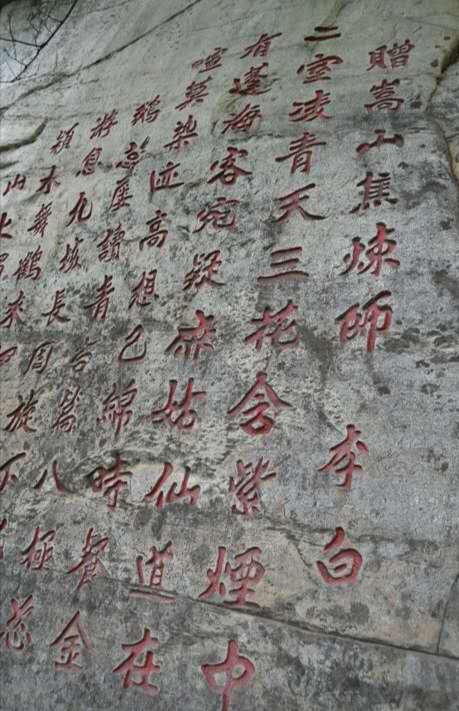 贈嵩山焦煉師 李白
二室凌青天三花含紫煙中
有蓬海客宛疑麻姑仙道在
喧莫染迹高想已綿時餐金
鵝蕊屢讀青苔篇八極恣
九垓長周旋下
潁水舞鶴來
山